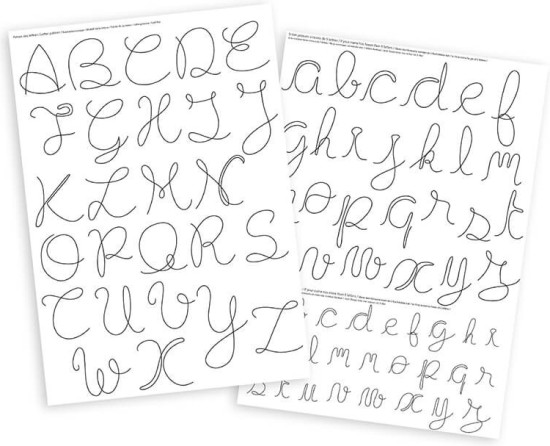 A B C D E
F G H I J
K L M N
O P Q R S
T U V Y Z
W X
a b c d e f
g h i j k l m
n o p q r s t
u v w x y z
b c d e f g h i
l m n o p q r
s t u v w x y z